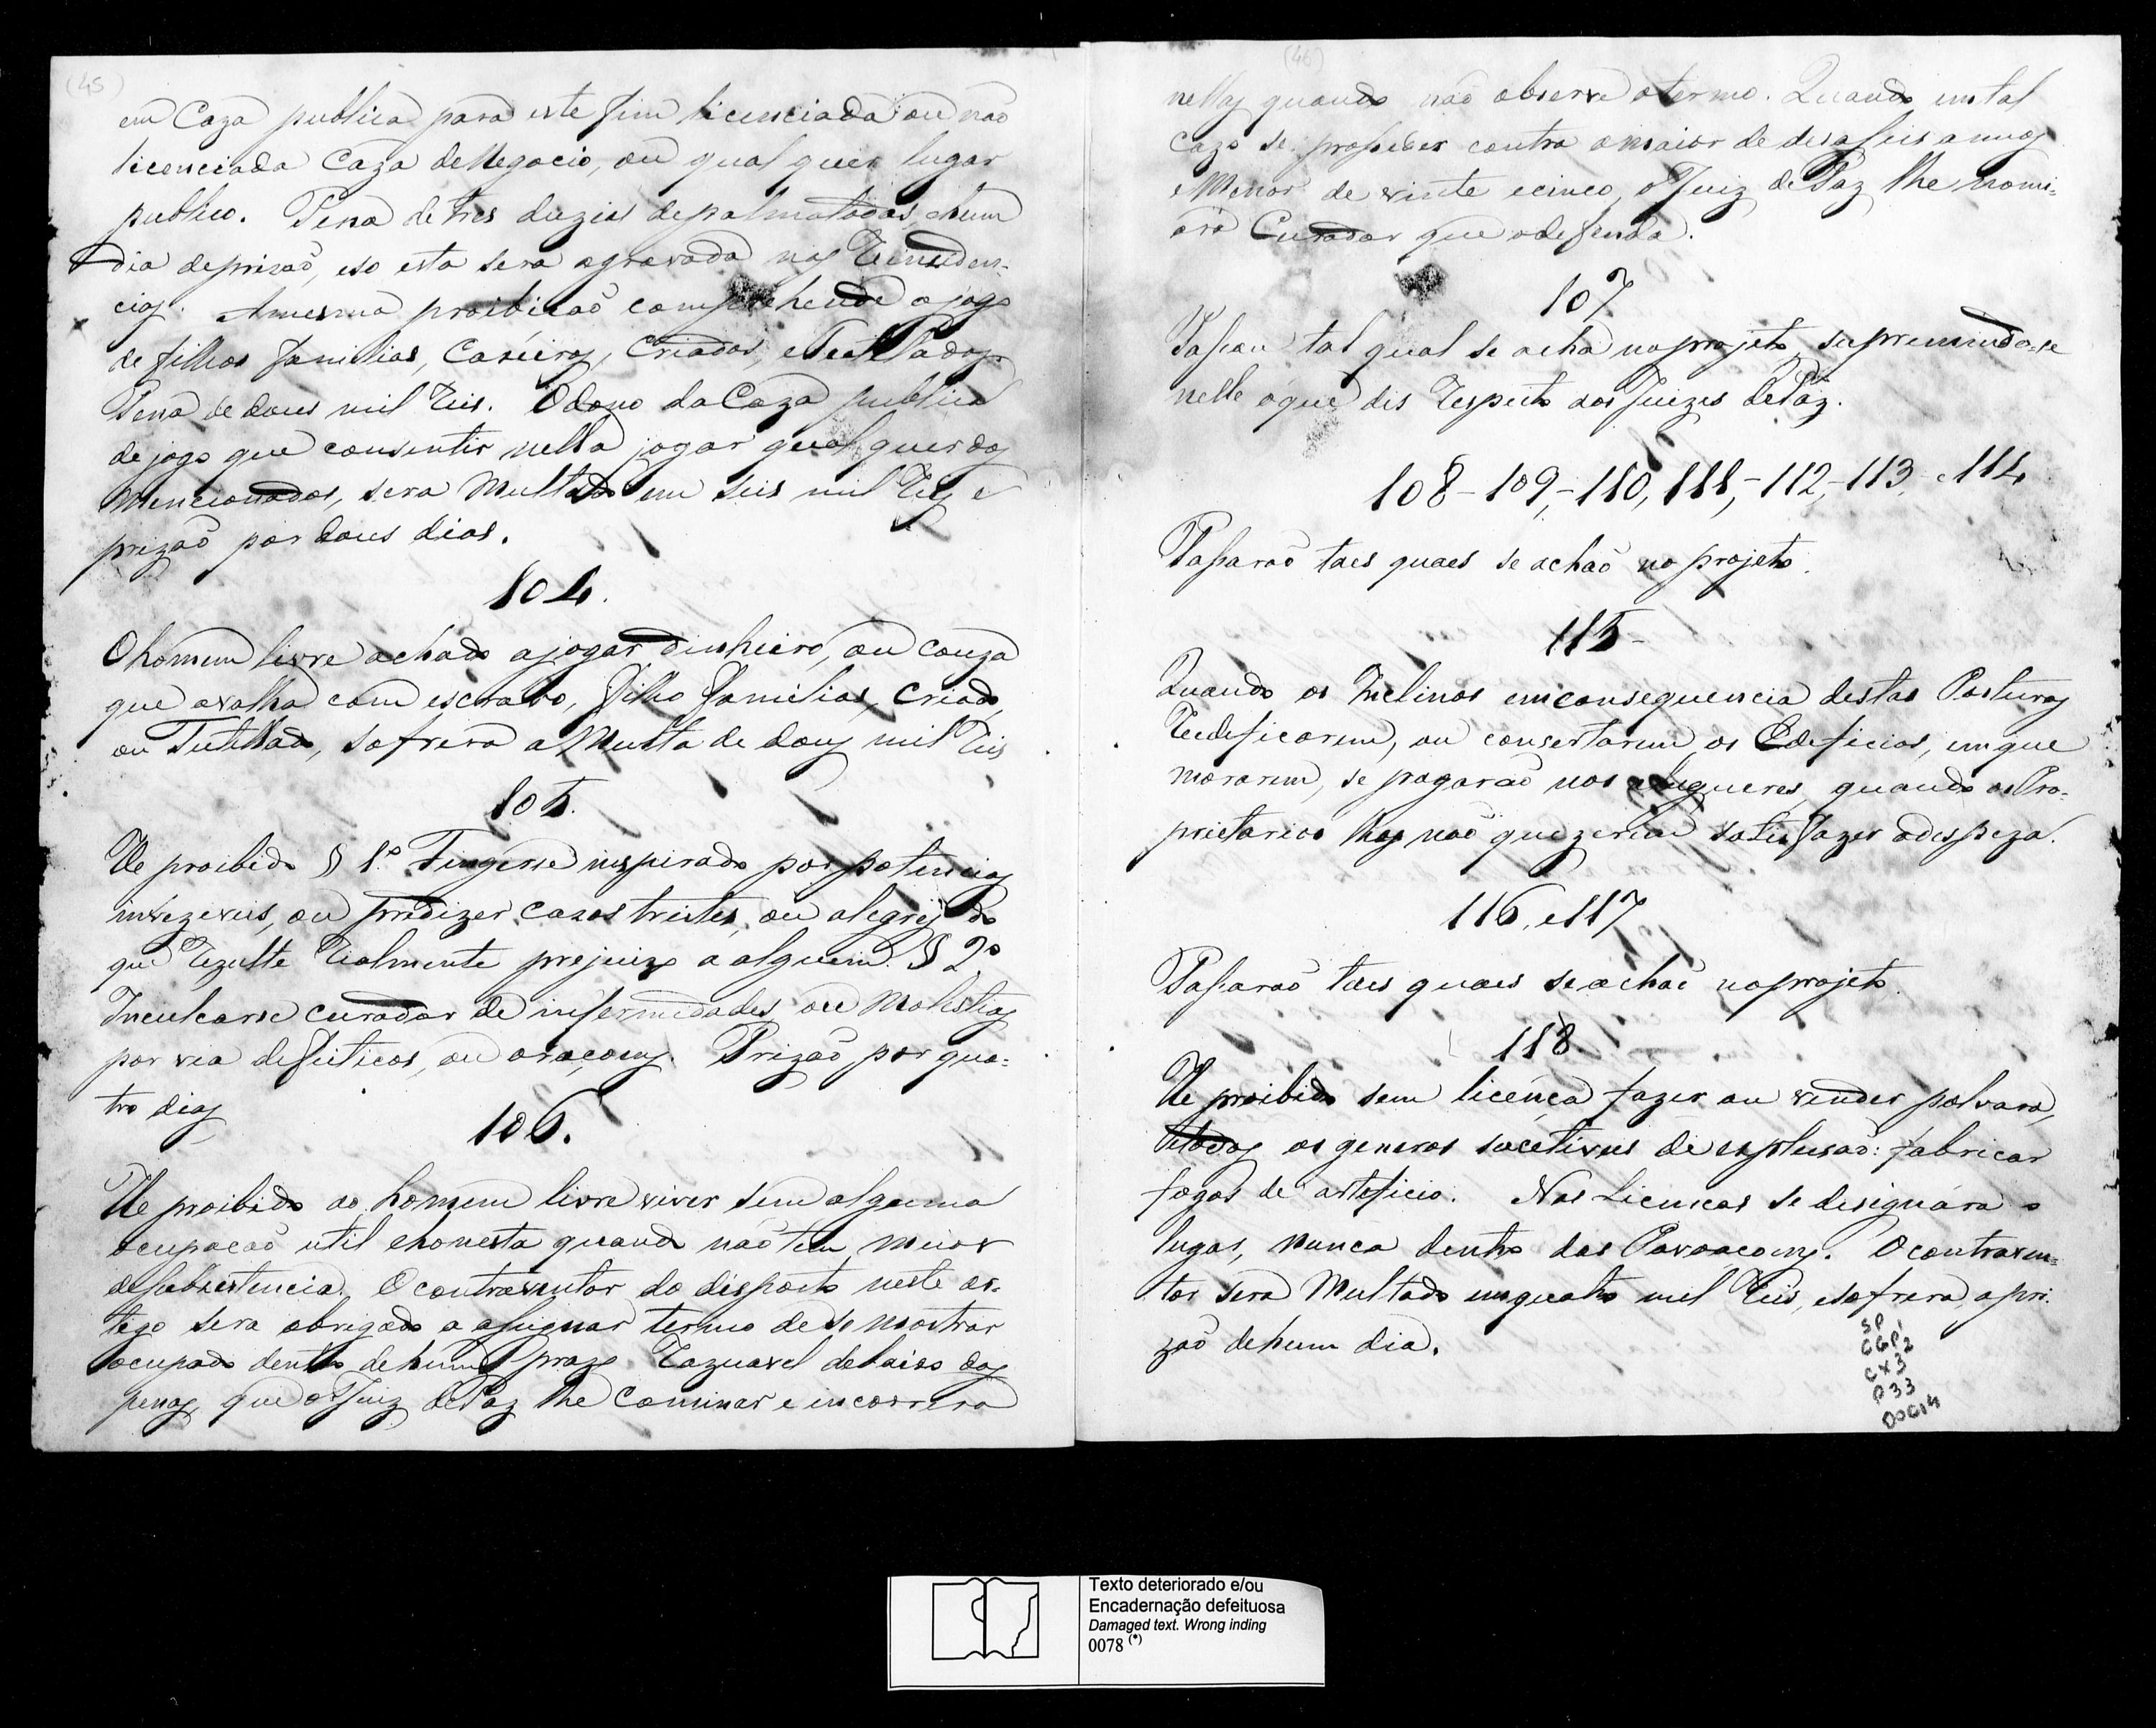 (45)
em Caza publica para este fim licenciada ou não
licenciada Caza de Negocio, ou qual quer lugar
publico. Pena de tres duzias de palmatoadas, e hum
dia de prizaõ, e so esta sera agravada nas Reinciden-
cias. A mesma proibicaõ comprehende o jogo
de filhos familias, Caxeiros, Criados, e Tutellados.
Pena de dous mil reis. O dono da Caza publica
de jogo que consentir nella jogar qual quer dos
mencionados, sera Multado em seis mil Reis e
prizaõ por dous dias.
104.
O homem livre achado a jogar dinheiro, ou couza
que o valha com escravo, filho familias, criado,
ou Tutellado, sofrera a Multa de dous mil Reis
105.
He proibido § 1º Fingerse inspirado por potencias
invezeveis, ou predizer cazos tristes, ou alegres do
que Rezulte Realmente prejuizo a alguem. § 2º
Inculcarse curador de infermidades, ou Molestias
por via de feiticos, ou oraçoens. Prizaõ por qua-
tro dias
106.
He proibido ao homem livre viver sem alguma
ocupacaõ util e honesta quando naõ tem meios
de subsistencia. O contraventor do disposto neste ar-
tego sera obrigado a assignar termo de se mostrar
ocupado dentro de hum prazo Razuavel debaixo das
penas, que o Juiz de Paz lhe cominar e incorrera
(46)
nellas quando naõ observe o termo. Quando em tal
cazo se proceder contra o maior de desaseis annos
e Menor de vinte e cinco, o Juiz de Paz lhe nomi-
ará Curador que o defenda.
107
Passou tal qual se acha no projeto, supremindo-se
nelle o que dis Respeito aos Juizes de Paz.
108-109,-110, 111,-112,-113, e 114
Passaraõ taes quaes se achaõ no projeto.
115-
Quando os Inclinos em consequencia destas Posturas
Reedeficarem, ou consertarem os Edeficios, em que
morarem, se pagaraõ nos alugueres, quando os Pro-
prietarios lhas naõ quezerem satisfazer a despeza.
116, e 117
Passaraõ taes quaes se achaõ no projeto.
118.
He proibido sem licença fazer ou vender polvara,
e todos os generos sucetiveis de explusaõ: fabricar
fogos de arteficio. Nas Licencas se designára o
lugar, nunca dentro das Povoacoens. O contraven-
tor sera Multado em quatro mil Reis, e sofrera a pri-
zaõ de hum dia.
SP
CGP1
CX32
P33
D0014
Texto deteriorado e/ou
Encadernação defeituosa
Damaged text. Wrong inding
0078 (*)